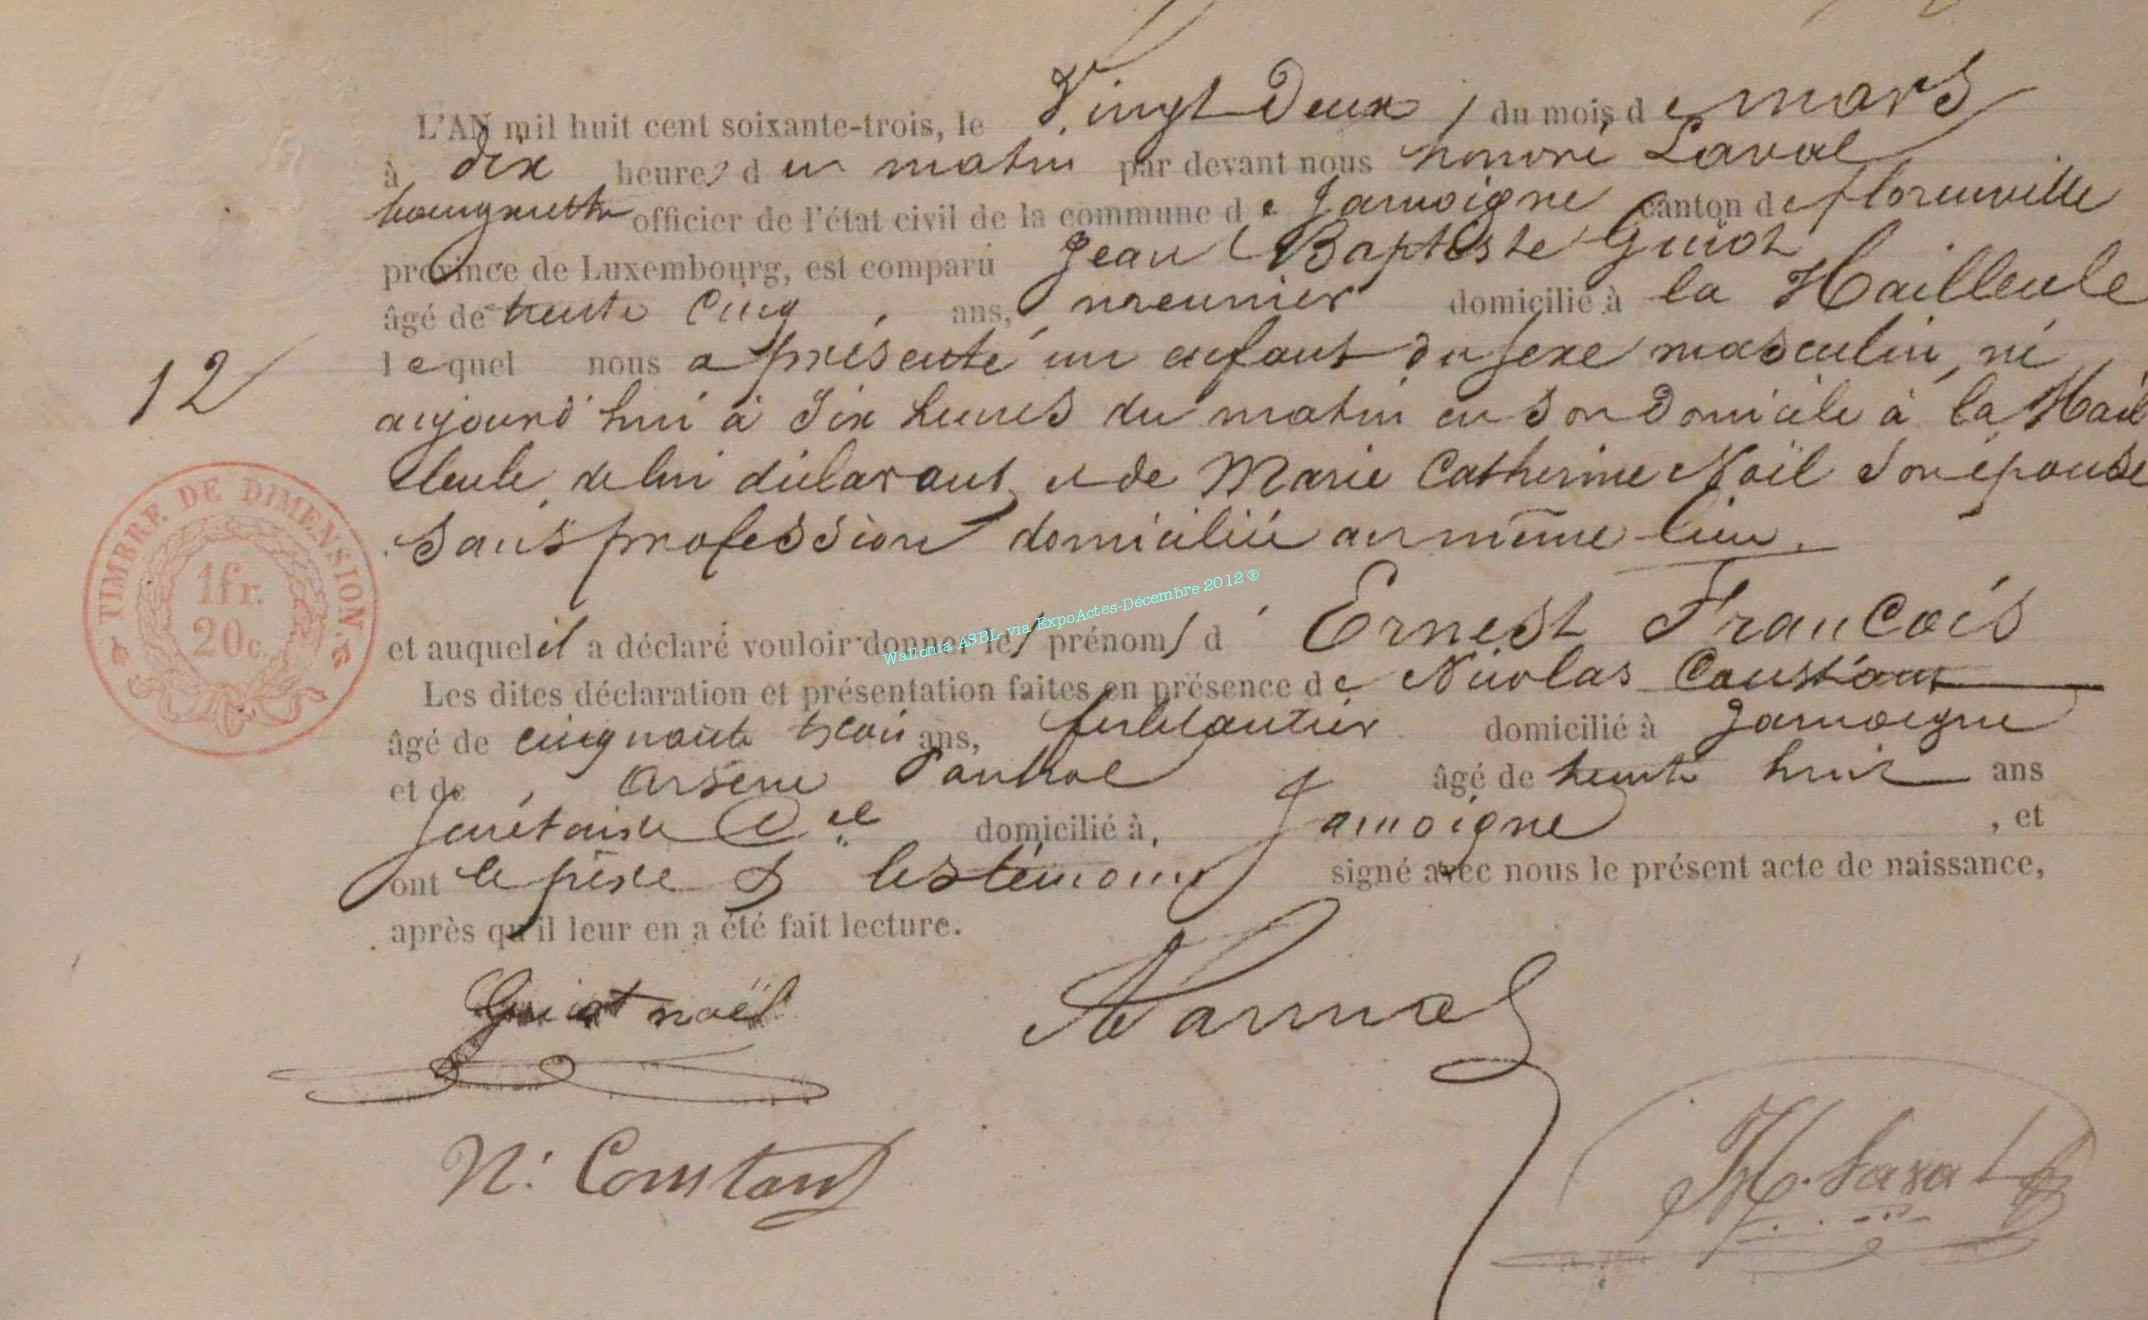 L'AN mil huit cent soixante-trois, le Vingt Deux, du mois de mars
à dix heures du matin par devant nous honoré Laval
bourgmestre officier de l'état civil de la commune de Jamoigne canton de florenville
province de Luxembourg, est comparu Jean Baptiste Guiot
âgé de trente cinq ans, meunier domicilié à la Hailleule
lequel nous a présenté un enfant du sexe masculin, né
aujourd'hui à Six heures du matin en son Domicile à la Hail
leule, de lui déclarant, et de Marie Catherine Noël Son épouse
Sans profession domiciliée au même lieu.
12
TIMBRE DE DIMENSION.
1fr.
20c.
et auquel il a déclaré vouloir donner les prénoms d' Ernest François
Wallonia ASBL via ExpoActes-Décembre 2012 ®
Les dites déclaration et présentation faites en présence de Nicolas Constant
âgé de cinquante trois ans, ferblantier domicilié à Jamoigne
et de Arsène âgé de trente huit ans
Secrétaire Cal domicilié à, Jamoigne, et
ont le père & les témoins signé avec nous le présent acte de naissance,
après qu'il leur en a été fait lecture.
Guiot noël
N. Constant
H. Laval